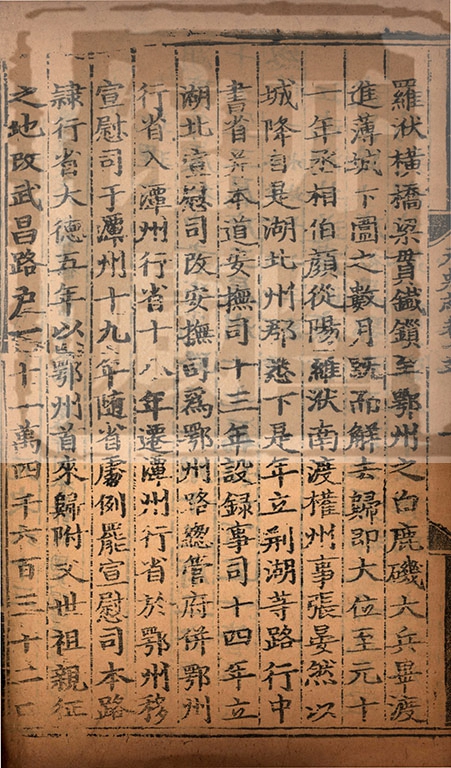 羅洑橫橋梁貫鐵鎖至鄂州之白鹿磯大兵畢渡
進薄城下圍之數月旣而解去歸即大位至元十
一年丞相伯顔從陽羅洑南渡權州事張晏然以
城降自是湖北州郡悉下是年立荆湖等路行中
書省并本道安撫司十三年設録事司十四年立
湖北宣慰司改安撫司爲鄂州路總管府併鄂州
行省入潭州行省十八年遷潭州行省於鄂州移
宣慰司于潭州十九年随省處例罷宣慰司本路
隷行省大德五年以鄂州首來歸附又世祖親征
之地改武昌路户一十一萬四千六百三十二口